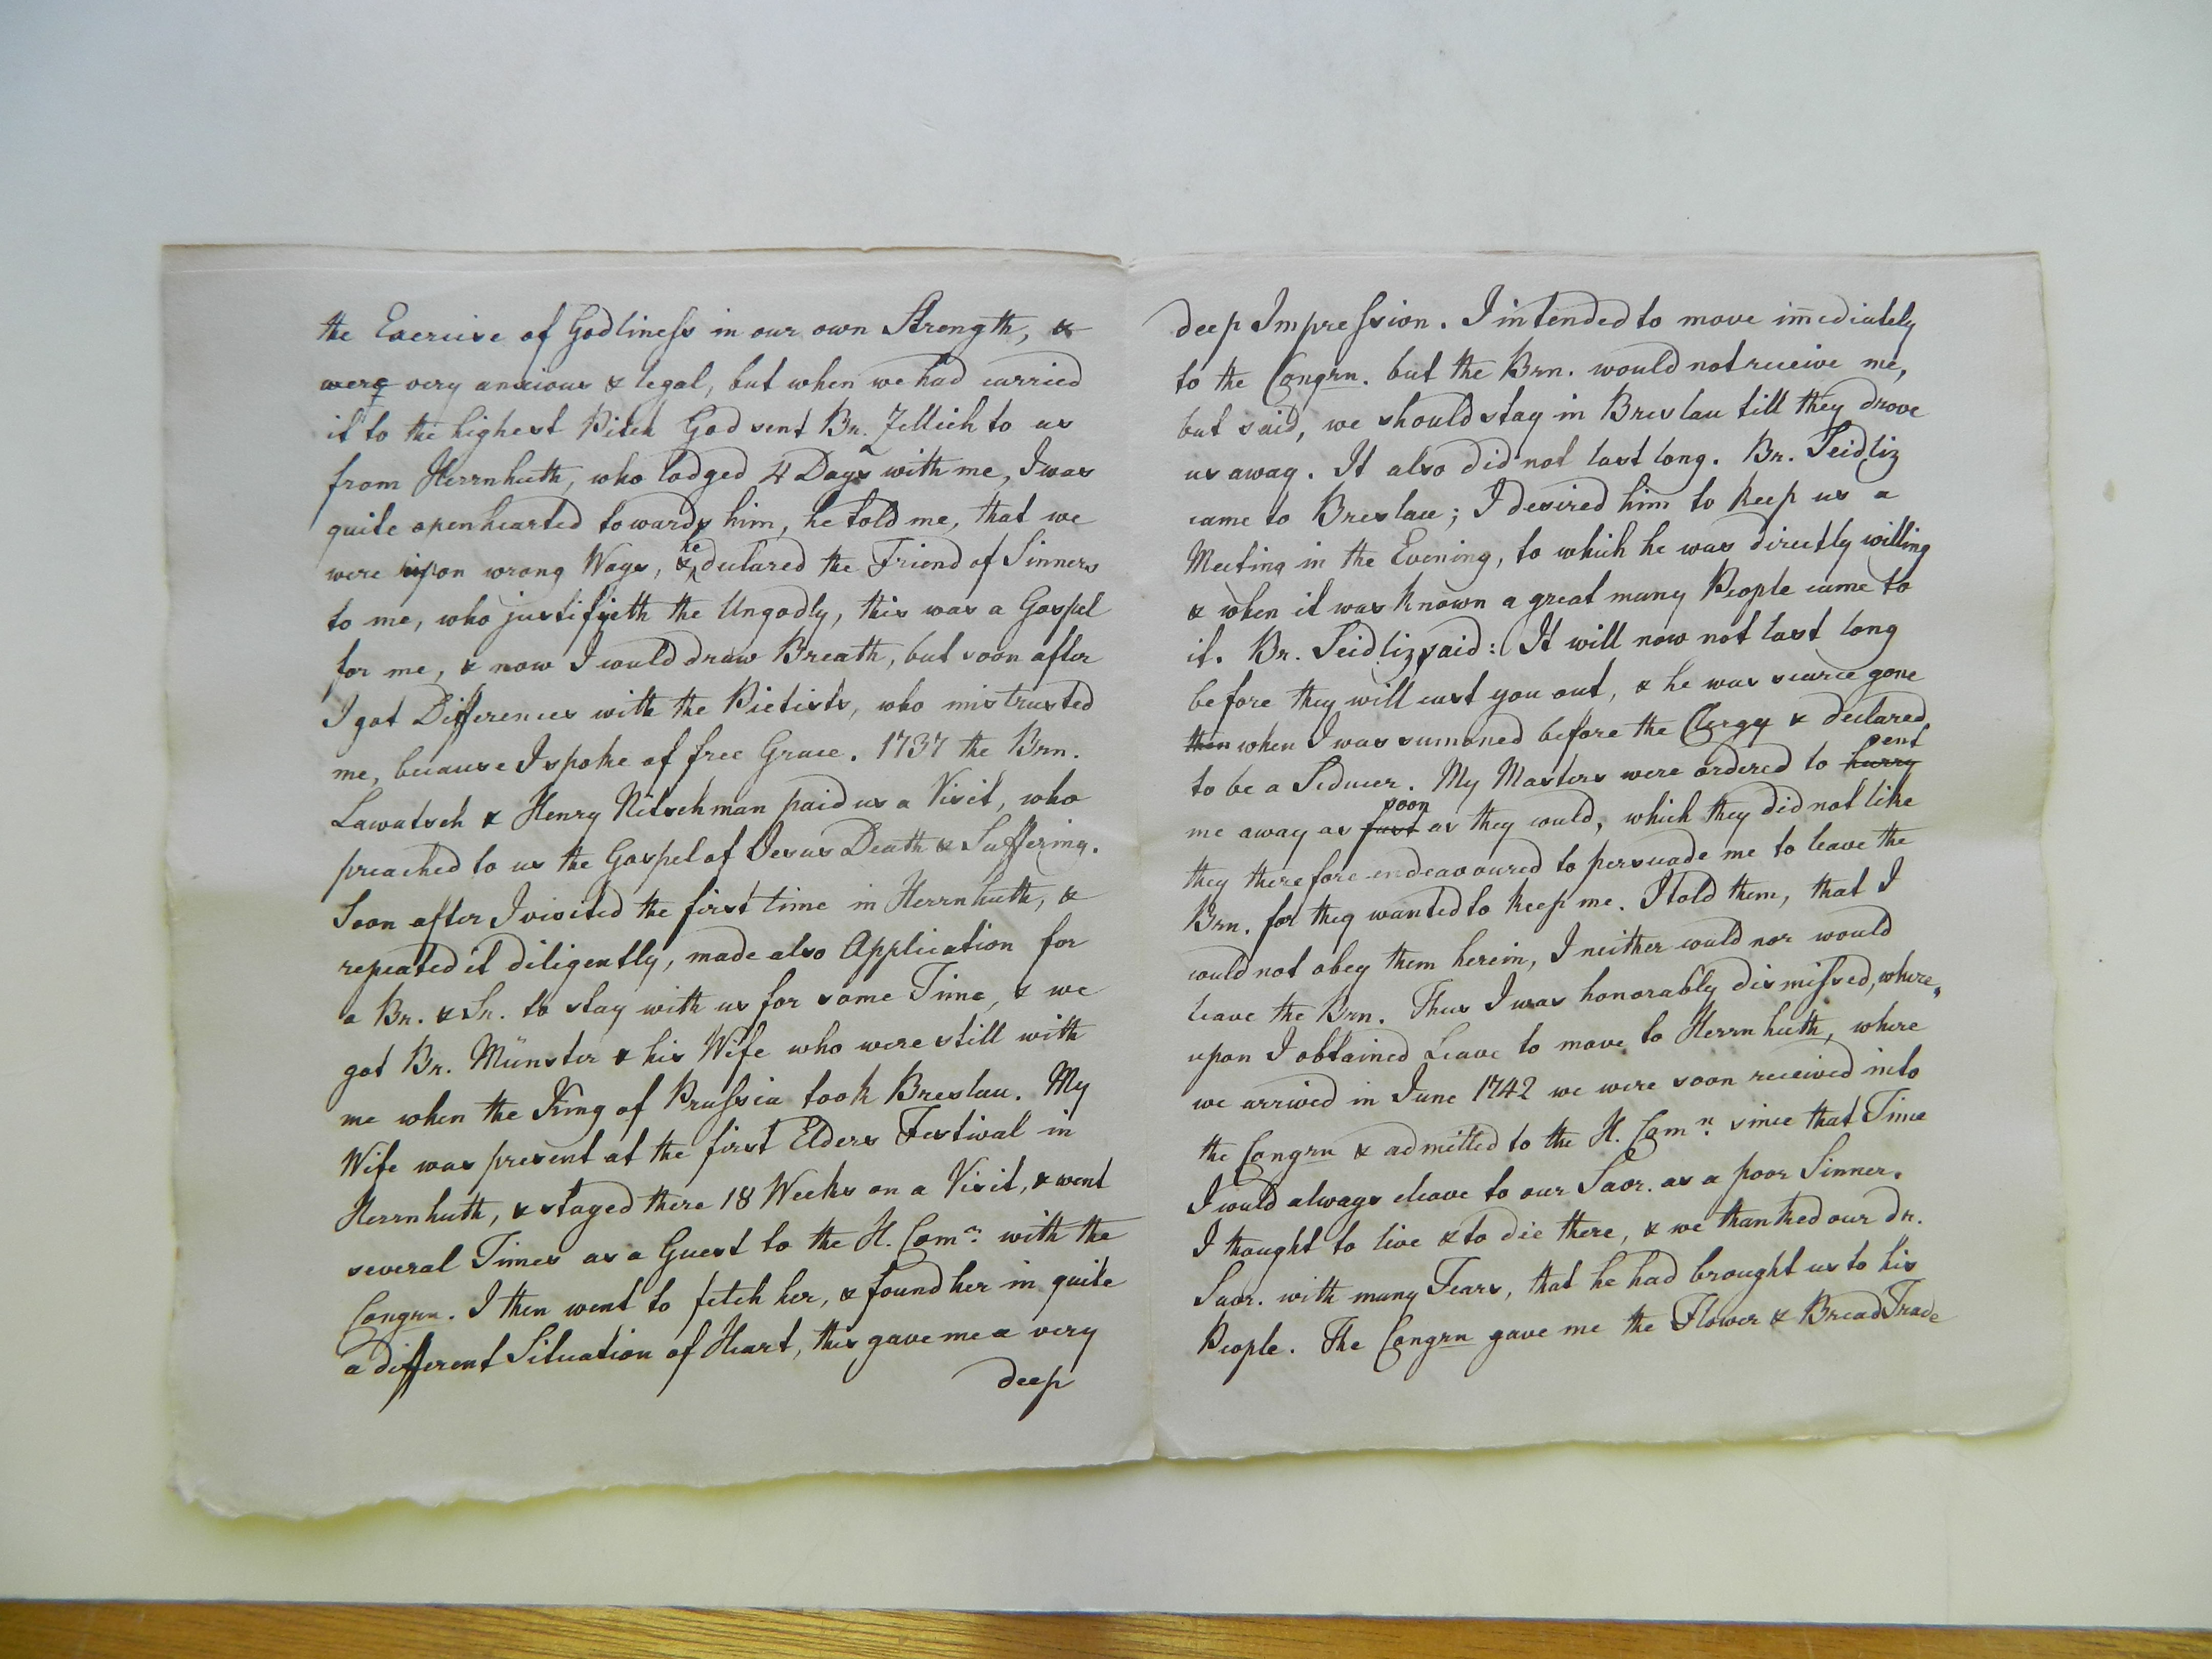 the Exercise of Godliness in our own Strength, &
were very anxious & legal, but when we had carried
it to the highest Pitch God sent Br. Zellich to us
from Herrnhuth, who lodged 4 Days with me, I was
quite openhearted towards him, he told me, that we
were upon wrong Ways, & he declared the Friend of Sinners
to me, who justifyeth the Ungodly, this was a Gospel
for me, & now I could draw Breath, but soon after
I got Differences with the Pietists, who mistrusted
me, because I spoke of free Grace. 1737 the Brn.
Lawatsch & Henry Nitschman paid us a Visit, who
preached to us the Gospel of Jesus Death & Suffering.
Soon after I visited the first time in Herrnhuth, &
repeated it diligently, made also Application for
a Br. & Sr. to stay with us for some Time, & we
got Br. Münster & his Wife who were still with
me when the King of Prussia took Breslau. My
Wife was present at the first Elders Festival in
Herrnhuth, & stayed there 18 Weeks on a Visit, & went
several Times as a Guest to the H. Comn. with the
Congrn. I then went to fetch her, & found her in quite
a different Situation of Heart, this gave me a very
deep
deep Impression. I intended to move immediately
to the Congrn. but the Brn. would not receive me,
but said, we should stay in Breslau till they drove
us away. It also did not last long. Br. Seidliz
came to Breslau; I desired him to keep us a
Meeting in the Evening, to which he was directly willing
& when it was known a great many People came to
it. Br. Seidliz said: It will now not last long
before they will cast you out, & he was scarce gone
then when I was summoned before the Clergy & declared
to be a Seducer. My Masters were ordered to hurry sent
me away as fast soon as they could, which they did not like
they therefore endeavoured to persuade me to leave the
Brn. for they wanted to keep me. I told them, that I
could not obey them herein, I neither could nor would
leave the Brn. Thus I was honorably dismissed, where„
upon I obtained Leave to move to Herrnhuth, where
we arrived in June 1742 we were soon received into
the Congrn & admitted to the H. Comn. since that Time
I could always cleave to our Saor. as a poor Sinner.
I thought to live & to die there, & we thanked our dr.
Saor. with many Tears, that he had brought us to his
People. The Congrn gave me the Flower & Bread Trade